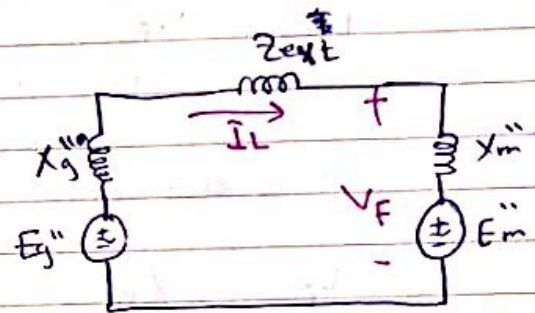 Zext
IL
+
Xg"
Xm"
VF
Eg"
±
±
Em"
-